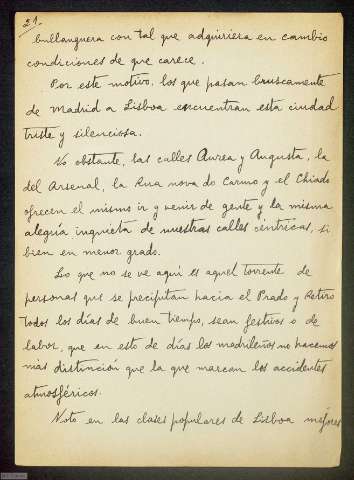 21.
bullanguera con tal que adquiriera en cambio
condiciones de que carece.
Por este motivo, los que pasan bruscamente
de Madrid a Lisboa encuentran esta ciudad
triste y silenciosa.
No obstante, las calles Aurea y Augusta, la
del Arsenal, la Rua nova do Carmo y el Chiado
ofrecen el mismo ir y venir de gente y la misma
alegría inquieta de nuestras calles céntricas, si
bien en menor grado.
Lo que no se ve aquí es aquel torrente de
personas que se precipitan hacia el Prado y Retiro
todos los días de buen tiempo, sean festivos o de
labor, que en esto de días los madrileños no hacemos
más distinción que la que marcan los accidentes
atmosféricos.
Noto en las clases populares de Lisboa mejores